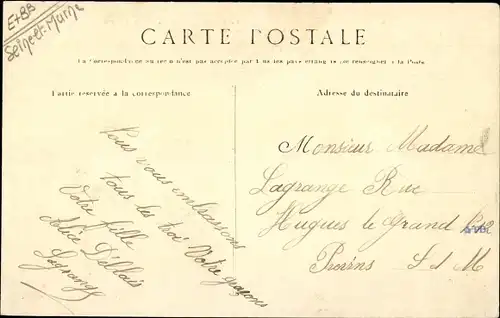 E+BB
Seine et Marne
CARTE POSTALE
La Correspondance au recto n'est pas acceptée par tous les pays étrangers (se renseigner à la Poste)
Partie réservée à la correspondance
Adresse du destinataire
Vous vous embrassons
tous les troi Votre garçons
Votre fille
Alice
Lagrange
Monsieur Madame
Lagrange Rue
Hugues le Grand
Provins S d M